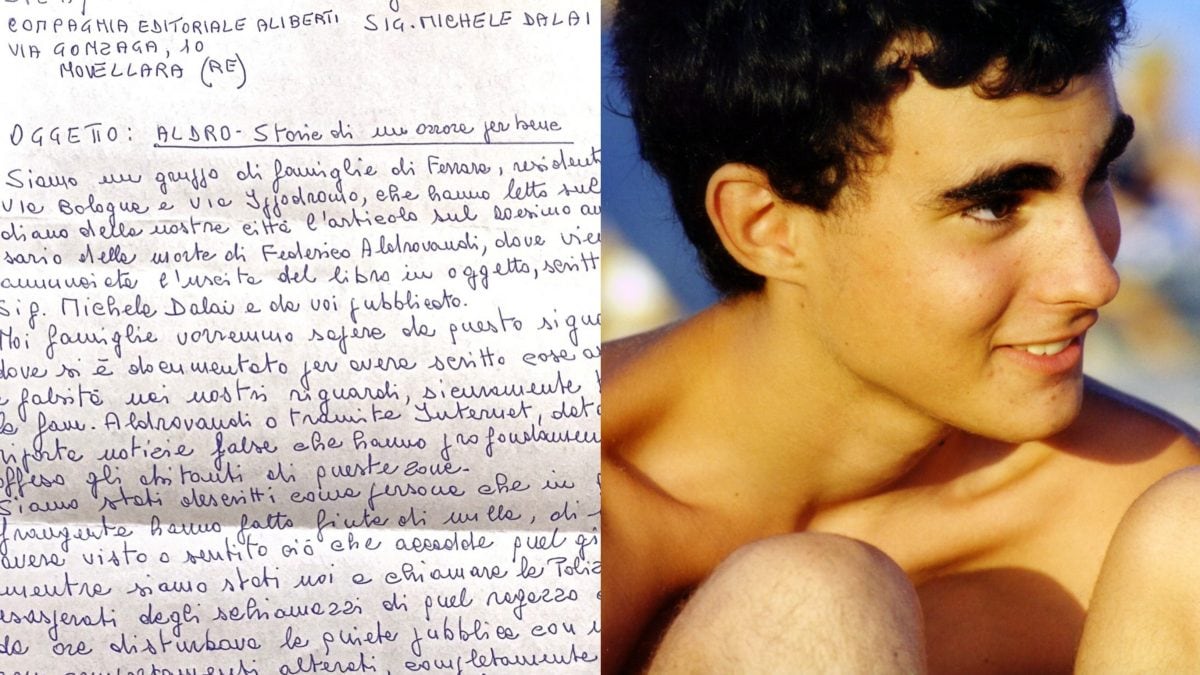 COMPAGNIA EDITORIALE ALIBERTI SIG. MICHELE DALAI
VIA GONZAGA, 10
NOVELLARA (RE)
OGGETTO: ALDRO - Storie di un orrore per bene
Siamo un gruppo di famiglie di Ferrara, resident
Via Bologna e Via Ippodromo, che hanno letto sul
diano della nostra città l'articolo sul
sario della morte di Federico Aldrovandi, dove
annunciata l'uscita del libro in oggetto, scritt
Sig. Michele Dalai e da voi pubblicato.
Noi famiglie vorremmo sapere da questo sign
dove si è documentato per avere scritto cose
e falsità nei nostri riguardi, sicuramente
la fam. Aldrovandi o tramite Internet, dat
riporta notizie false che hanno profondamen
offeso gli abitanti di queste zone.
Siamo stati descritti come persone che in
frangente hanno fatto finta di nulla, di
avere visto o sentito ciò che accadde quel gi
mentre siamo stati noi a chiamare la Poliz
esasperati dagli schiamazzi di quel ragazzo
da ore disturbava la quiete pubblica con
comportamenti alterati, completamente